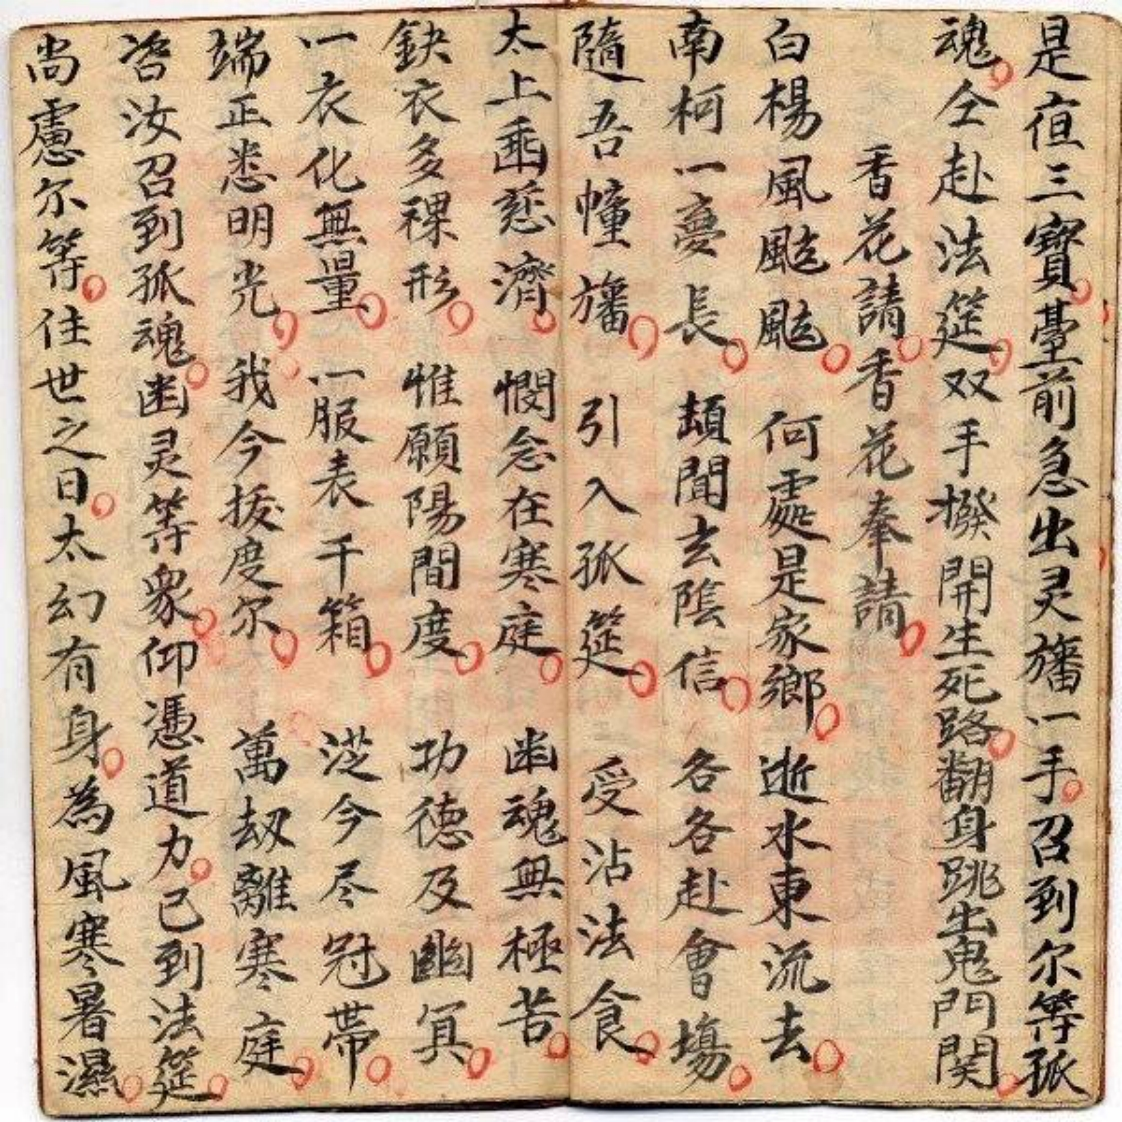 是夜三寶臺前急出灵旛一手召到尔等孤
魂仝赴法筵双手撥開生死路翻身跳出鬼門関
香花請香花奉請
白楊風颭颭 何處是家鄉 逝水東流去
南柯一夢長 頡聞玄陰信 各各赴會場
隨吾幢旛 引入孤筵 受沾法食
太上垂慈濟 憫念在寒庭 幽魂無極苦
缺衣多裸形 惟願陽間度 功德及幽冥
一衣化無量 一服表千箱 從今尽冠帶
端正悉明光 我今拔度尔 萬劫離寒庭
咨汝召到孤魂幽灵等衆仰憑道力已到法筵
尚慮尔等住世之日太幻有身為風寒暑濕